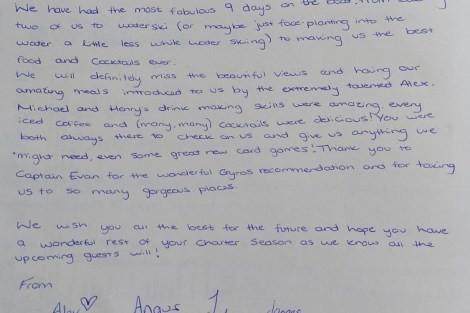 We have had the most fabulous 9 days on the boat. From
two of us to waterski (or maybe just face-planting into the
water a little less while water skiing) to making us the best
food and cocktails ever.
We will definitely miss the beautiful views and having our
amazing meals introduced to us by the extremely talented Alex.
Michael and Henry's drink making skills were amazing, every
iced coffee and (many, many) cocktails were delicious! You were
both always there to check on us and give us anything we
might need, even some great new card games! Thank you to
Captain Evan for the wonderful Gyros recommendation and for taking
us to so many gorgeous places.
We wish you all the best for the future and hope you have
a wonderful rest of your charter season as we know all the
upcoming guests will!
From
Angus